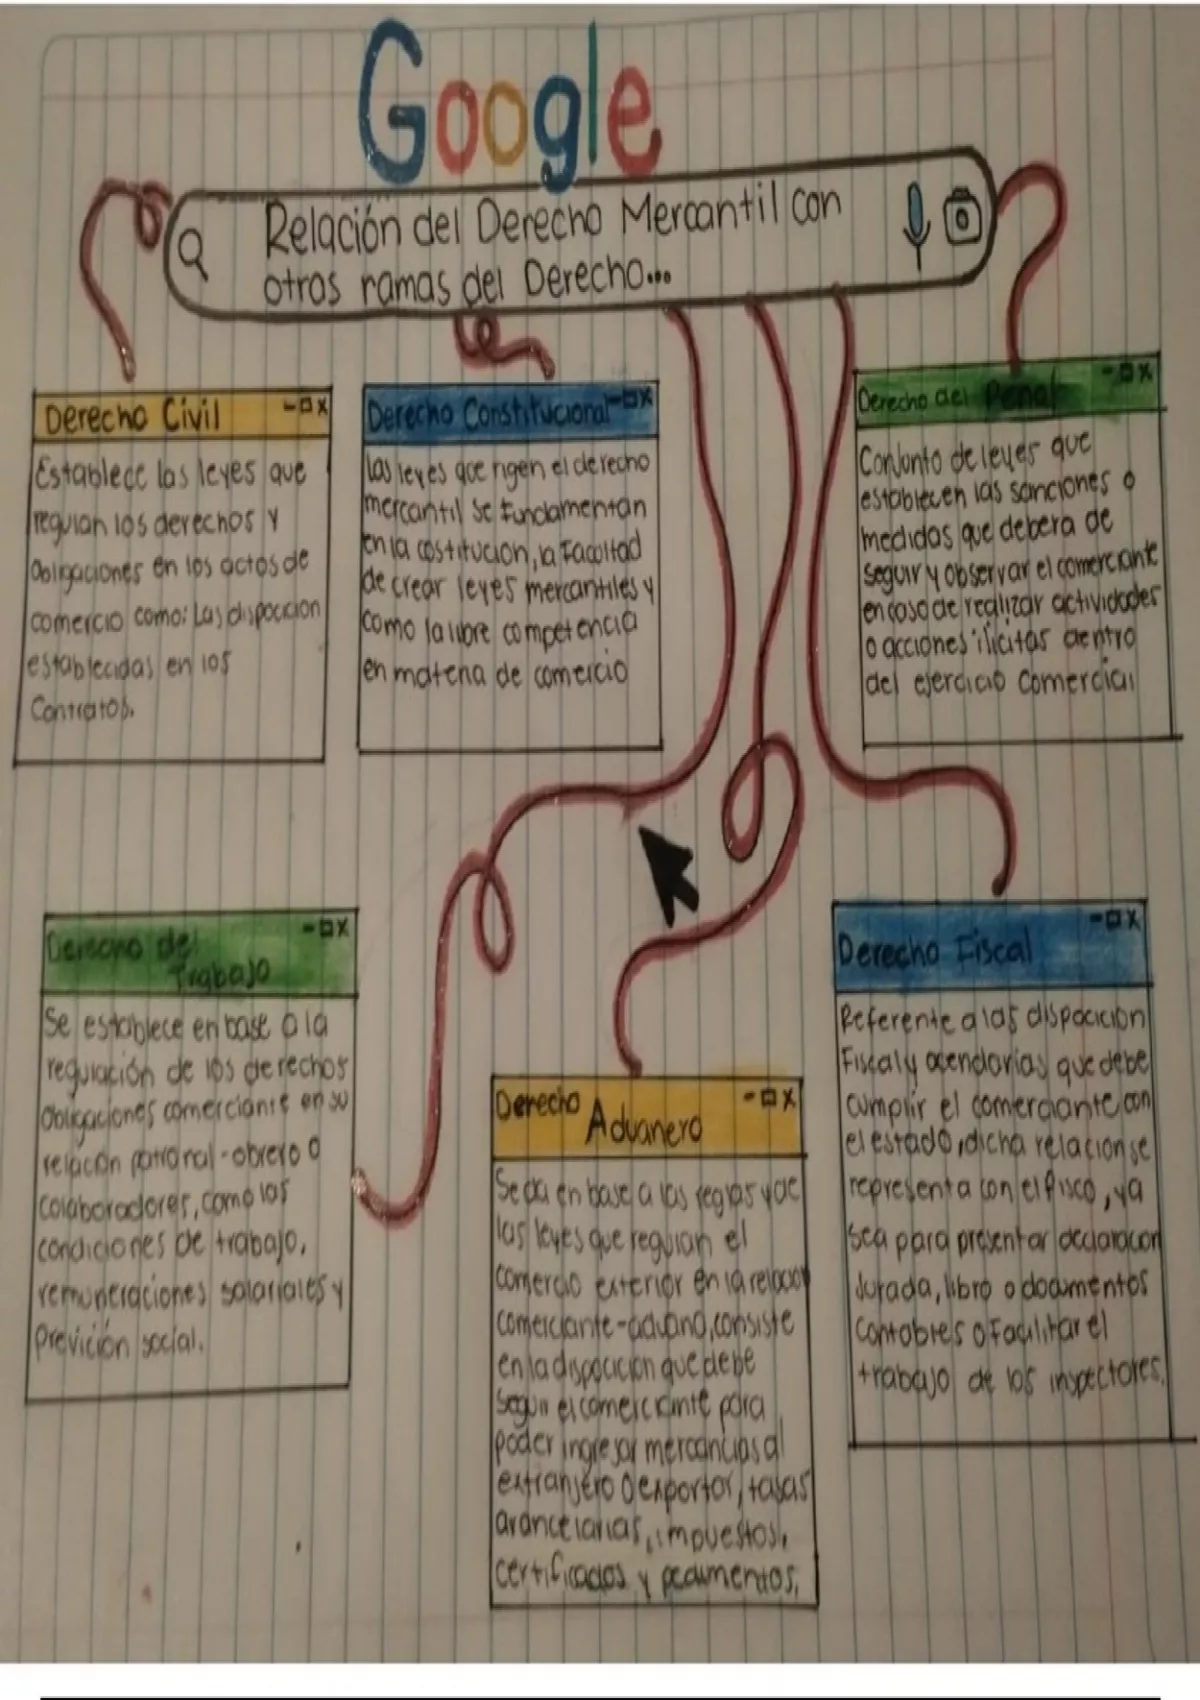 Google
Relación del Derecho Mercantil con
otras ramas del Derecho...
Derecho Civil
Establece las leyes que
regulan los derechos y
obligaciones en los actos de
comercio como: Las dispocicion
establecidas en los
Contratos.
Derecho Constitucional
Las leyes que rigen el derecho
mercantil se fundamentan
en la costitucion, la facultad
de crear leyes mercantiles y
como la libre competencia
en materia de comercio
Derecho del Penal
Conjunto de leyes que
establecen las sanciones o
medidas que debera de
seguir y observar el comerciante
en caso de realizar actividades
o acciones ilicitas dentro
del ejercicio comercial
Derecho del
Trabajo
Se establece en base a la
regulación de los derechos
obligaciones comerciante en su
relación patronal-obrero o
colaboradores, como las
condiciones de trabajo,
remuneraciones salariales y
previción social.
Derecho
Aduanero
Se da en base a las reglas y de
las leyes que regulan el
comercio exterior en la relacion
comerciante-aduana, consiste
en la dispocicion que debe
seguir el comerciante para
poder ingresar mercancias al
extranjero o exportar, tasas
arancelarias, impuestos,
certificados y pedimentos.
Derecho Fiscal
Referente a las dispocicion
Fiscal y acendarias que debe
cumplir el comerciante con
el estado, dicha relacion se
representa con el fisco, ya
sea para presentar declaracion
Jurada, libro o documentos
Contables o facilitar el
trabajo de los inspectores.